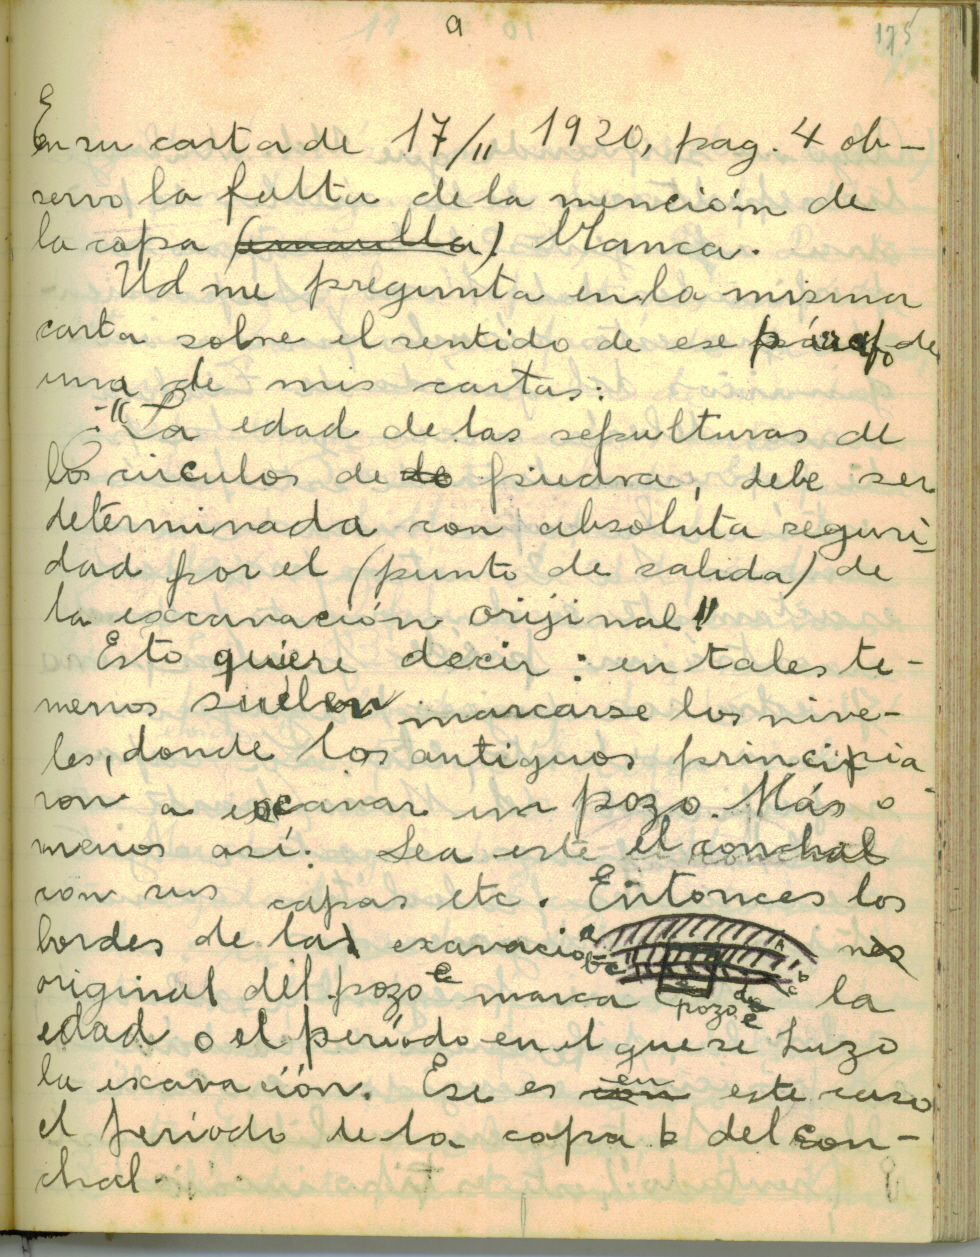 a
175
En su carta de 17/11 1920, pag. 4 ob-
servo la falta de la mención de
la capa (amarilla) blanca.
Ud me pregunta en la misma
carta sobre el sentido de ese páraf. de
una de mis cartas:
-"La edad de las sepulturas de
los circulos de de piedra, debe ser
determinada con absoluta seguri-
dad por el (punto de salida) de
la excavación orijinal!"
Esto quiere decir: en tales te-
menos suelen marcarse los nive-
les, donde los antiguos principia
ron a excavar un pozo. Más o
menos así: Sea este el conchal
con sus capas etc. Entonces los
bordes de las excavacio nes
a
b c
b
c
original del pozo e marca la
pozo
d
e
edad o el período en el que se hizo
la excavación. Ese es con en este caso
el período de la capa b del con-
chal.